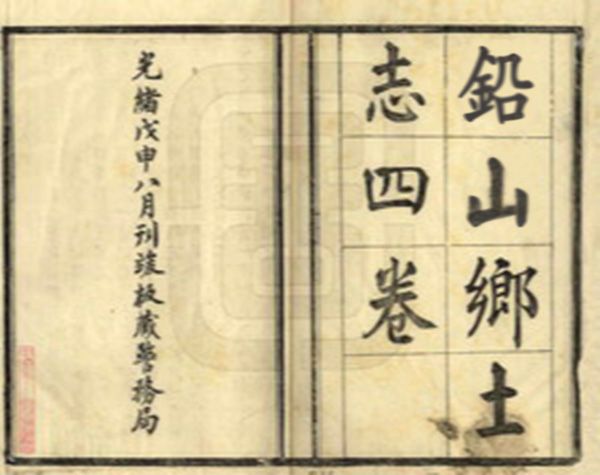 鉛山鄉土
志四卷
光緒戊申八月刊竣板藏警務局